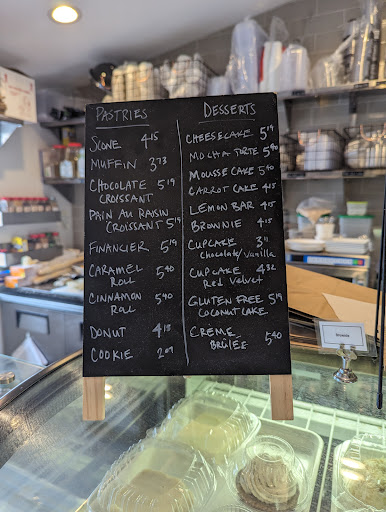 PASTRIES
SCONE 4.15
MUFFIN 3.73
CHOCOLATE 5.19
CROISSANT
PAIN AU RAISIN
CROISSANT 5.19
FINANCIER 5.19
CARAMEL 5.40
ROLL
CINNAMON 5.40
ROLL
DONUT 4.15
COOKIE 2.09
DESSERTS
CHEESECAKE 5.19
MOCHA TORTE 5.40
MOUSSE CAKE 5.40
CARROT CAKE 4.15
LEMON BAR 4.15
BROWNIE 4.15
CUPCAKE 3.11
Chocolate/Vanilla
CUPCAKE 4.32
Red Velvet
GLUTEN FREE 5.19
COCONUT CAKE
CREME 5.40
BRÛLEE